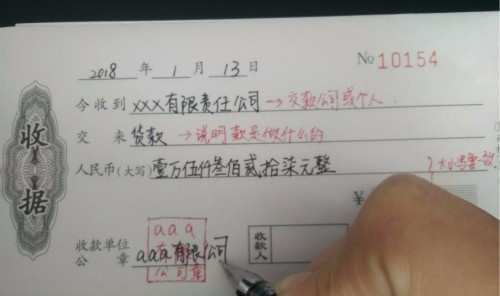 2018 年 1 月 13 日 No 10154
今收到 xxx有限责任公司 → 交款公司或个人.
交来 货款 → 说明款是做什么的
人民币(大写) 壹万伍仟叁佰贰拾柒元整 }大小写要一致
收据
¥
收款单位公章 aaa有限公司
aaa
公司章
收款人